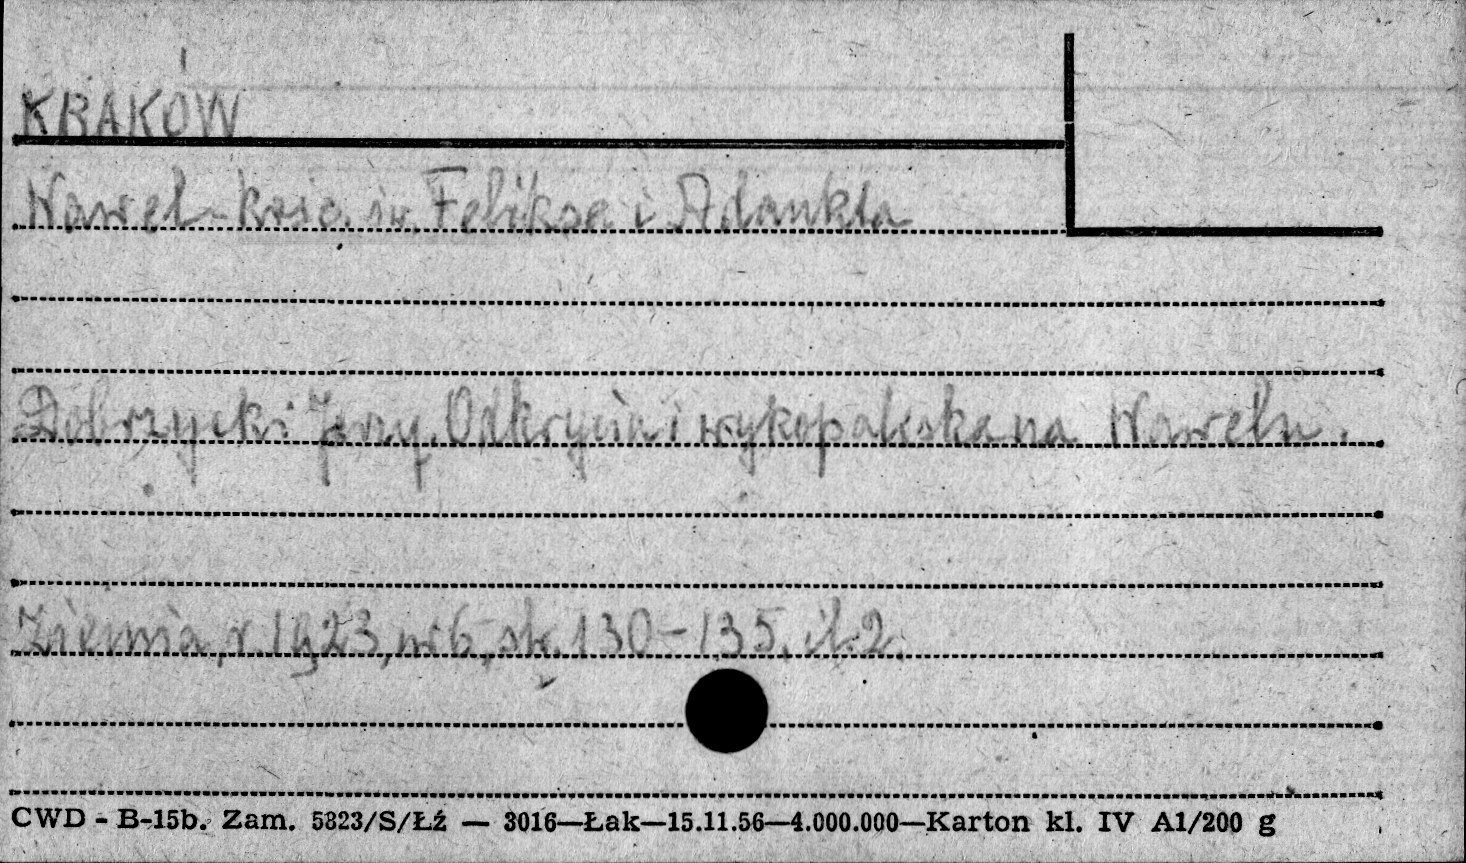 KRAKÓW
Wawel - kośc. św. Feliksa i Adaukta
Dobrzycki Jerzy, Odkrycia i wykopaliska na Wawelu.
Ziemia, r. 1923, nr 6, str. 130-135, il. 2.
CWD - B-15b. Zam. 5823/S/Łź — 3016—Łak—15.11.56—4.000.000—Karton kl. IV A1/200 g